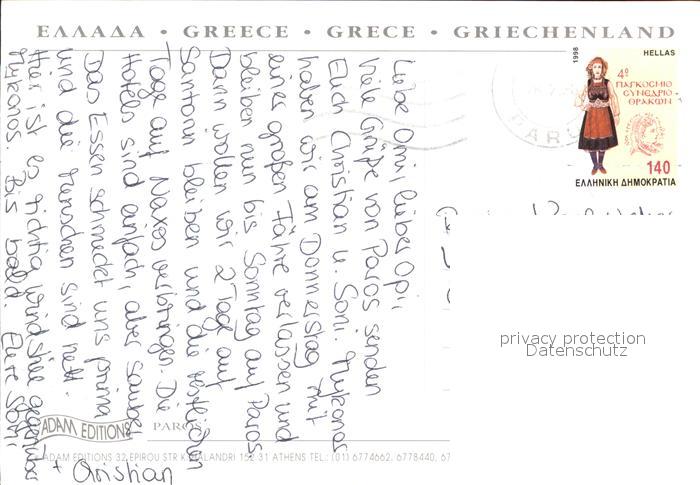 ΕΛΛΑΔΑ • GREECE • GRECE • GRIECHENLAND
1998
HELLAS
4º
ΠΑΓΚΟΣΜΙΟ
ΣΥΝΕΔΡΙΟ
ΘΡΑΚΩΝ
140
ΕΛΛΗΝΙΚΗ ΔΗΜΟΚΡΑΤΙΑ
Liebe Omi! lieber Opi!
Viele Grüße von Paros senden
Euch Christian u. Soni. Mykonos
haben wir am Donnerstag mit
einer großen Fähre verlassen und
bleiben nun bis Sonntag auf Paros
Dann wollen wir 2 Tag auf
Santorin bleiben und die restlichen
Tage auf Naxos verbringen. Die
Hotels sind einfach, aber sauber
Das Essen schmeckt uns prima
und die Menschen sind nett.
Hier ist es richtig windstill gegenüber
Mykonos Bis bald! Eure Soni
+ Christian
privacy protection
Datenschutz
ADAM EDITIONS
PAROS
ADAM EDITIONS 32, EPIROU STR. K. HALANDRI 152 31 ATHENS TEL.: (01) 6774662, 6778440, 67